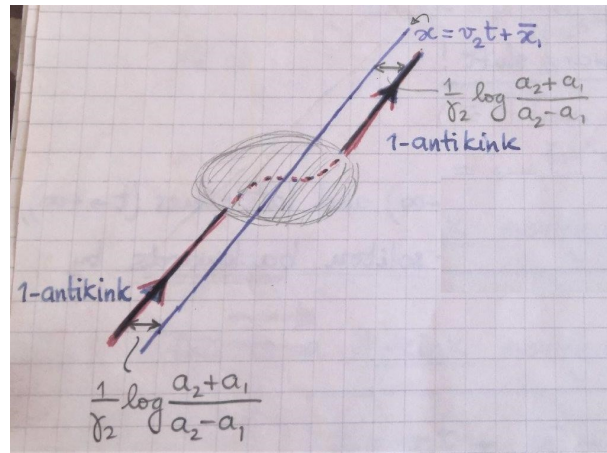 x = v₂t + x̄₁
1/γ₂ log (a₂+a₁)/(a₂-a₁)
1-antikink
1-antikink
1/γ₂ log (a₂+a₁)/(a₂-a₁)